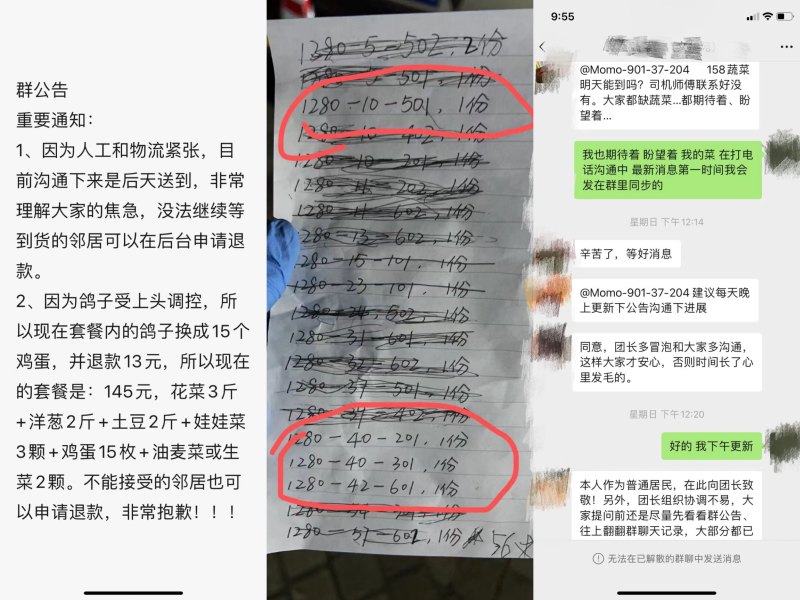 群公告
重要通知：
1、因为人工和物流紧张，目
前沟通下来是后天送到，非常
理解大家的焦急，没法继续等
到货的邻居可以在后台申请退
款。
2、因为鸽子受上头调控，所
以现在套餐内的鸽子换成15个
鸡蛋，并退款13元，所以现在
的套餐是：145元，花菜3斤
+洋葱2斤+土豆2斤+娃娃菜
3颗+鸡蛋15枚+油麦菜或生
菜2颗。不能接受的邻居也可
以申请退款，非常抱歉！！！
1280-5-502，2份
1280-5-501，1份
1280-10-501，1份
1280-10-402，1份
1280-10-201，1份
1280-11-602，1份
1280-13-602，1份
1280-15-101，1份
1280-23-101，1份
1280-31-601，1份
1280-32-602，1份
1280-37-501，1份
1280-40-201，1份
1280-40-301，1份
1280-42-601，1份
1280-57-602，1份
9:55
@Momo-901-37-204 158蔬菜
明天能到吗？司机师傅联系好没
有。大家都缺蔬菜...都期待着、盼
望着...
我也期待着 盼望着 我的菜 在打电
话沟通中 最新消息第一时间我会
发在群里同步的
星期日 下午12:14
辛苦了，等好消息
@Momo-901-37-204 建议每天晚
上更新下公告沟通下进展
同意，团长多冒泡和大家多沟通，
这样大家才安心，否则时间长了心
里发毛的。
星期日 下午12:20
好的 我下午更新
本人作为普通居民，在此向团长致
敬！另外，团长组织协调不易，大
家提问前还是尽量先看看群公告、
往上翻翻群聊天记录，大部分都已
无法在已解散的群聊中发送消息